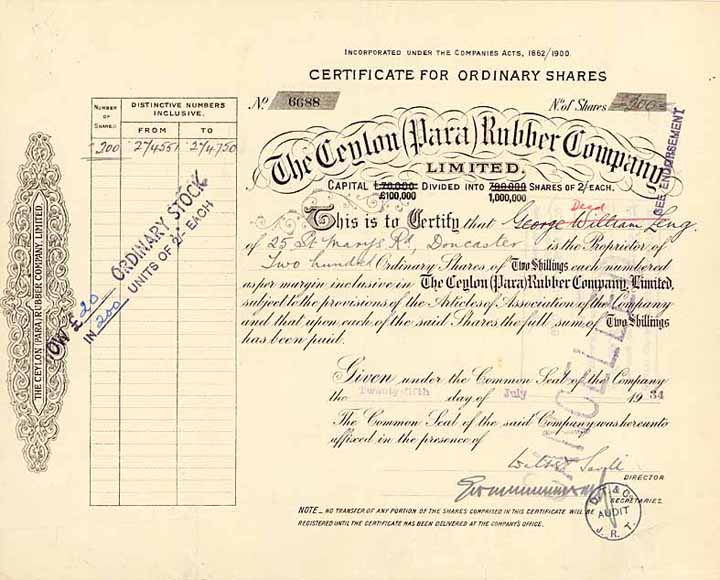 INCORPORATED UNDER THE COMPANIES ACTS, 1862/1900.
CERTIFICATE FOR ORDINARY SHARES
No. 6688
No. of Shares =200=
The Ceylon (Para) Rubber Company,
LIMITED.
CAPITAL £70,000 DIVIDED INTO 700,000 SHARES OF 2/- EACH.
£100,000 1,000,000
Decd
This is to Certify that George William Leng.
of 25 St Marys Rd, Doncaster is the Proprietor of
Two hundred Ordinary Shares of Two Shillings each numbered
as per margin inclusive in The Ceylon (Para) Rubber Company, Limited,
subject to the provisions of the Articles of Association of the Company
and that upon each of the said Shares the full sum of Two Shillings
has been paid.
Given under the Common Seal of the Company
the Twenty-fifth day of July 1934
The Common Seal of the said Company was hereunto
affixed in the presence of
DIRECTOR
SECRETARIES.
NOTE.- NO TRANSFER OF ANY PORTION OF THE SHARES COMPRISED IN THIS CERTIFICATE WILL BE
REGISTERED UNTIL THE CERTIFICATE HAS BEEN DELIVERED AT THE COMPANY'S OFFICE.
NUMBER OF SHARES
DISTINCTIVE NUMBERS INCLUSIVE.
FROM TO
200 274551 274750
NOW £20 ORDINARY STOCK
IN 200 UNITS OF 2/- EACH
THE CEYLON (PARA) RUBBER COMPANY, LIMITED.
SEE ENDORSEMENT
CANCELLED
D.T. & Co.
AUDIT
J.R.T.